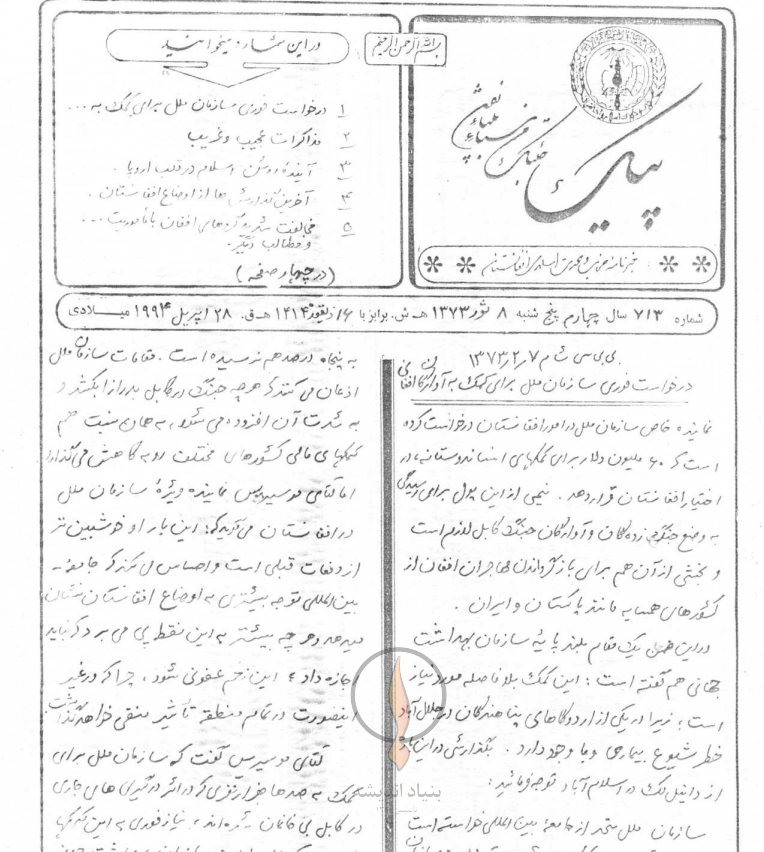 بسم الله الرحمن الرحیم
پیک
خبرنامه حزب وحدت اسلامی افغانستان
در این شماره میخوانید
۱ درخواست فوری سازمان ملل برای کمک به ...
۲ مذاکرات عجیب و غریب
۳ آینده روشن اسلام در قلب اروپا .
۴ آخرین گذارش ها از اوضاع افغانستان .
۵ مخالفت شدید گروهای افغان با ماموریت ...
و مطالب دیگر .
(در چهار صفحه)
شماره ۷۱۳ سال چهارم پنج شنبه ۸ ثور ۱۳۷۳ هـ ش. برابر با ۱۶ ذیقعد ۱۴۱۴ هـ ق. ۲۸ اپریل ۱۹۹۴ میلادی
بی بی سی شام ۷ر۲ر۱۳۷۳
درخواست فوری سازمان ملل برای کمک به آوارگان افغانی
نماینده خاص سازمان ملل در امور افغانستان درخواست کرده
است که ۶۰ ملیون دلار برای کمکهای انساندوستانه، در
اختیار افغانستان قرار دهد . نیمی از این پول برای رسیدگی
به وضع جنگ زده گان و آوارگان جنگ کابل لازم است
و بخشی از آن هم برای باز گرداندن مهاجران افغان از
کشورهای همسایه مانند پاکستان و ایران .
در این همال یک مقام بلند پایه سازمان بهداشت
جهانی هم گفته است : این کمک بلافاصله مورد نیاز
است ، زیرا در یکی از اردوگاهای پناهندگان در جلال آباد
خطر شیوع بیماری وبا وجود دارد . بگذارشی در این باره
از دانیل لک در اسلام آباد توجه فرمائید :
سازمان ملل متحد از جامعه بین المللی خواسته است
به پنجاه درصد هم نرسیده است . مقامات سازمان ملل
اذعان می کنند که هر چه جنگ در کابل بدرازا بکشد و
به شدت آن افزوده می شود ، به همان نسبت هم
کمکهای مالی کشورهای مختلف رو به کاهش می گذارد
اما نماینده ویژه سازمان ملل
در افغانستان می گوید که : این بار او خوشبین تر
از دفعات قبلی است و احساس می کند که جامعه
بین المللی توجه بیشتری به اوضاع افغانستان نشان
میدهد و هر چه بیشتر به این نقطه پی می برد که نباید
اجازه داد ، این زخم عفونی شود ، چرا که در غیر
اینصورت در تمام منطقه تأثیر منفی خواهد گذاشت
گفت که سازمان ملل برای
کمک به صدها هزار نفری که در اثر درگیری های جاری
در کابل بی خانمان شده اند ، نیاز فوری به این کمکها
بنیاد اندیشه